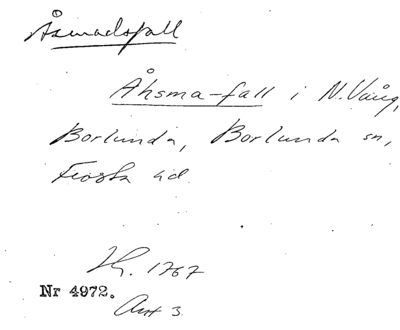 Åsmadsfall
Åhsma-fall i N. Vång,
Borlunda, Borlunda sn,
Frosta hd.
Hy. 1767
Nr 4972.
Akt 3.